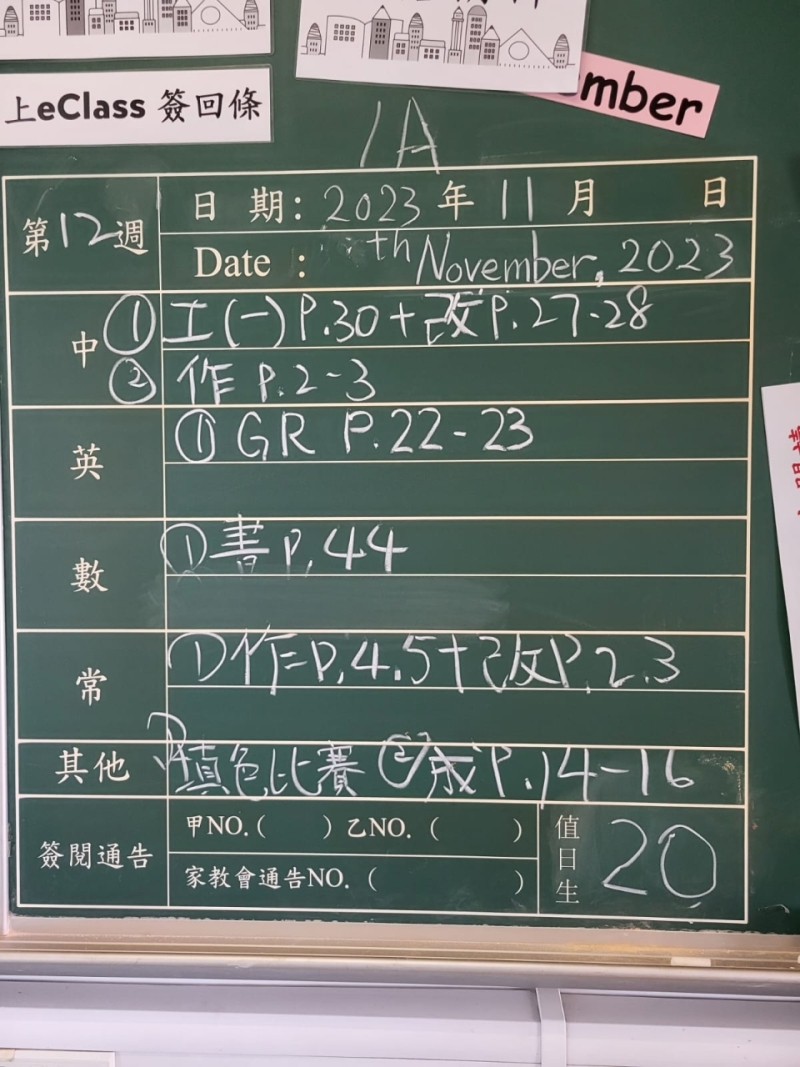 上eClass 簽回條
mber
1A
第12週
日 期：2023 年 11 月 日
Date : th November, 2023
中 ① 工(一) P.30 + 改 P.27-28
② 作 P.2-3
英 ① GR P.22-23
數 ① 書 P.44
常 ① 作 P.4.5 + 改 P.2.3
其他 ① 填色比賽 ② 成 P.14-16
簽閱通告
甲NO.( ) 乙NO. ( )
家教會通告NO. ( )
值日生 20